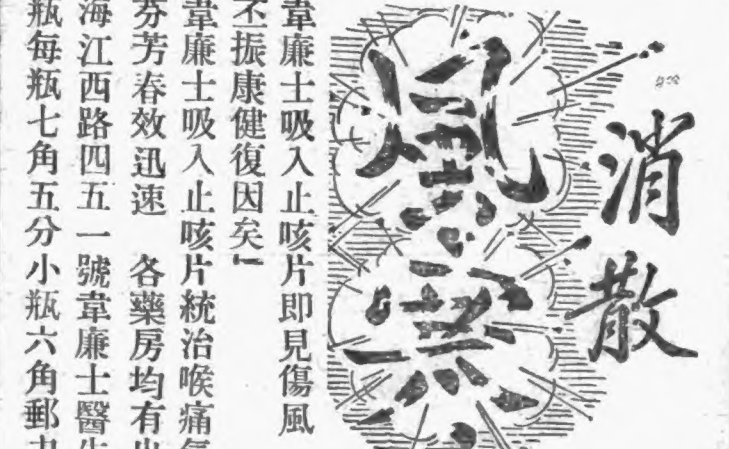 消散
風寒
韋廉士吸入止咳片即見傷風
丕振康健復因矣」
韋廉士吸入止咳片統治喉痛氣
芬芳春效迅速　各藥房均有出
海江西路四五一號韋廉士醫生
瓶每瓶七角五分小瓶六角郵